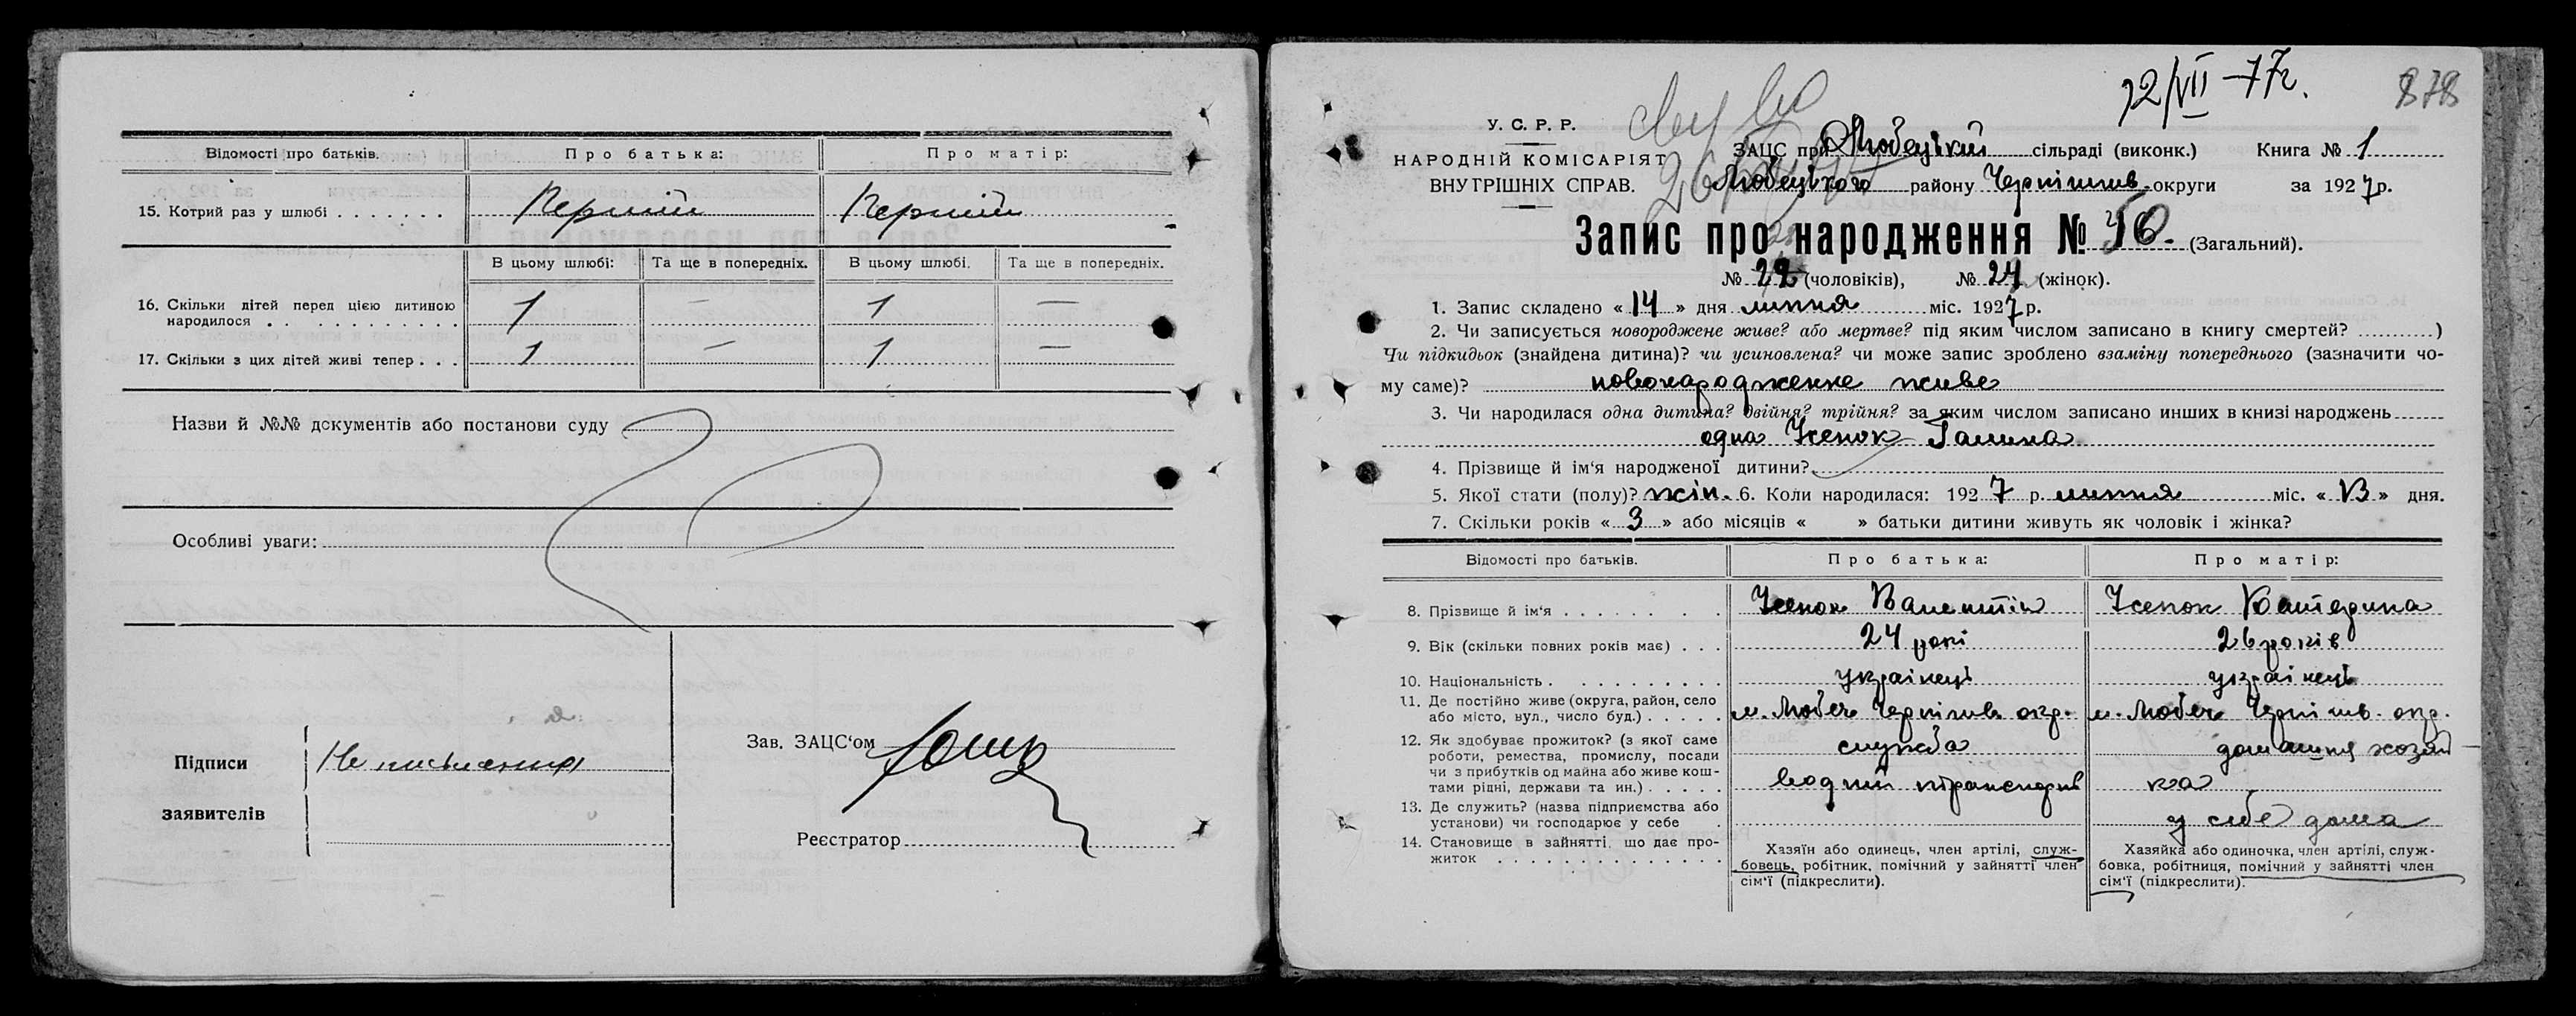 Відомості про батьків. Про батька: Про матір:
15. Котрий раз у шлюбі . . . . . . . Перший Перший
В цьому шлюбі: Та ще в попередніх. В цьому шлюбі. Та ще в попередніх.
16. Скільки дітей перед цією дитиною
народилося . . . . . . . . . . . 1 — 1 —
17. Скільки з цих дітей живі тепер . . . 1 — 1 —
Назви й №№ документів або постанови суду
Особливі уваги:
Підписи
заявителів
Не письменна
Зав. ЗАЦС‘ом
Реєстратор
12/VII-77г.
878
У. С. Р. Р.
НАРОДНІЙ КОМІСАРІЯТ
ВНУТРІШНІХ СПРАВ.
ЗАЦС при Любецький сільраді (виконк.) Книга № 1
Любецького району Чернігив. округи за 1927 р.
Запис про народження № 50. (Загальний).
№ 22 (чоловіків), № 27 (жінок).
1. Запис складено « 14 » дня липня міс. 1927 р.
2. Чи записується новороджене живе? або мертве? під яким числом записано в книгу смертей? ..........)
Чи підкидьок (знайдена дитина)? чи усиновлена? чи може запис зроблено взаміну попереднього (зазначити чо-
му саме)? новонародженне живе
3. Чи народилася одна дитина? двійня? трійня? за яким числом записано инших в книзі народжень
одна Усенок Галина
4. Прізвище й ім‘я народженої дитини?
5. Якої стати (полу)? жін. 6. Коли народилася: 1927 р. липня міс. « 13 » дня.
7. Скільки років « 3 » або місяців « » батьки дитини живуть як чоловік і жінка?
Відомості про батьків. Про батька: Про матір:
8. Прізвище й ім‘я . . . . . . . . Усенок Валентін Усенок Катерина
9. Вік (скільки повних років має) . . . 24 рокі 26 років
10. Національність . . . . . . . . . . українець українець
11. Де постійно живе (округа, район, село
або місто, вул., число буд.) . . . . . м. Любеч Чернігив окр. м. Любеч Чернігив. окр.
12. Як здобуває прожиток? (з якої саме
роботи, ремества, промислу, посади
чи з прибутків од майна або живе кош-
тами рідні, держави та ин.) . . . . .
служба
водний транспорт
домашня хозяй-
ка
13. Де служить? (назва підприємства або
установи) чи господарює у себе . у себе дома
14. Становище в зайнятті, що дає про-
житок . . . . . . . . . . . . . .
Хазяїн або одинець, член артілі, служ-
бовець, робітник, помічний у зайнятті член
сім‘ї (підкреслити).
Хазяйка або одиночка, член артілі, служ-
бовка, робітниця, помічний у зайнятті член
сім‘ї (підкреслити).